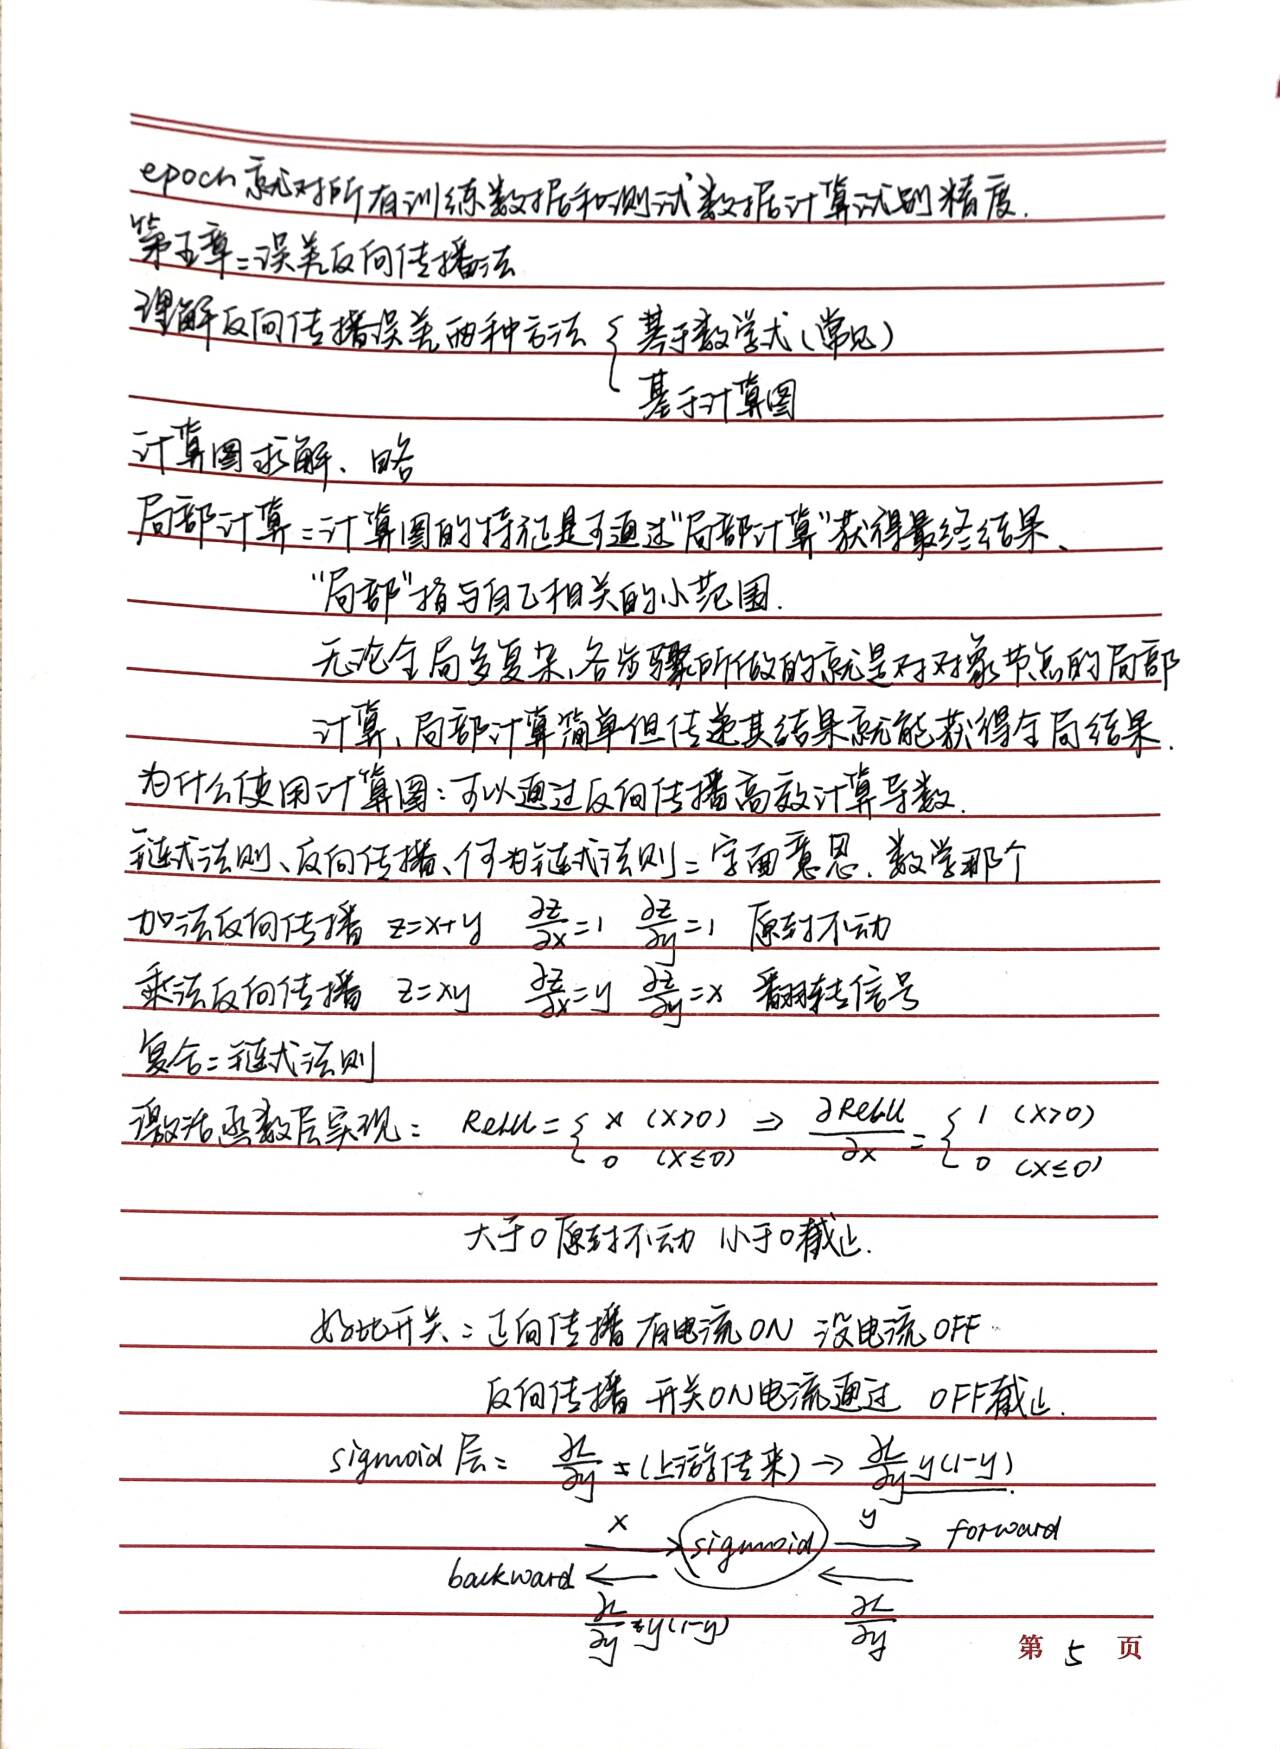 epoch 就对所有训练数据和测试数据计算识别精度.
第五章:误差反向传播法
理解反向传播误差两种方法 { 基于数学式(常见)
基于计算图
计算图求解、略
局部计算:计算图的特征是可通过"局部计算"获得最终结果、
"局部"指与自己相关的小范围.
无论全局多复杂、各步骤所做的就是对对象节点的局部
计算、局部计算简单但传递其结果就能获得全局结果.
为什么使用计算图:可以通过反向传播高效计算导数.
链式法则、反向传播、何为链式法则:字面意思.数学那个
加法反向传播 z=x+y ∂z/∂x=1 ∂z/∂y=1 原封不动
乘法反向传播 z=xy ∂z/∂x=y ∂z/∂y=x 翻转信号
复合:链式法则
激活函数层实现: ReLU={ x (x>0) 0 (x≤0) ⇒ ∂ReLU/∂x={ 1 (x>0) 0 (x≤0)
大于0原封不动 小于0截止.
好比开关:正向传播 有电流ON 没电流OFF
反向传播 开关ON电流通过 OFF截止.
sigmoid层: ∂L/∂y (上游传来) → ∂L/∂y y(1-y)
x sigmoid y forward
backward
∂L/∂y y(1-y) ∂L/∂y
第 5 页